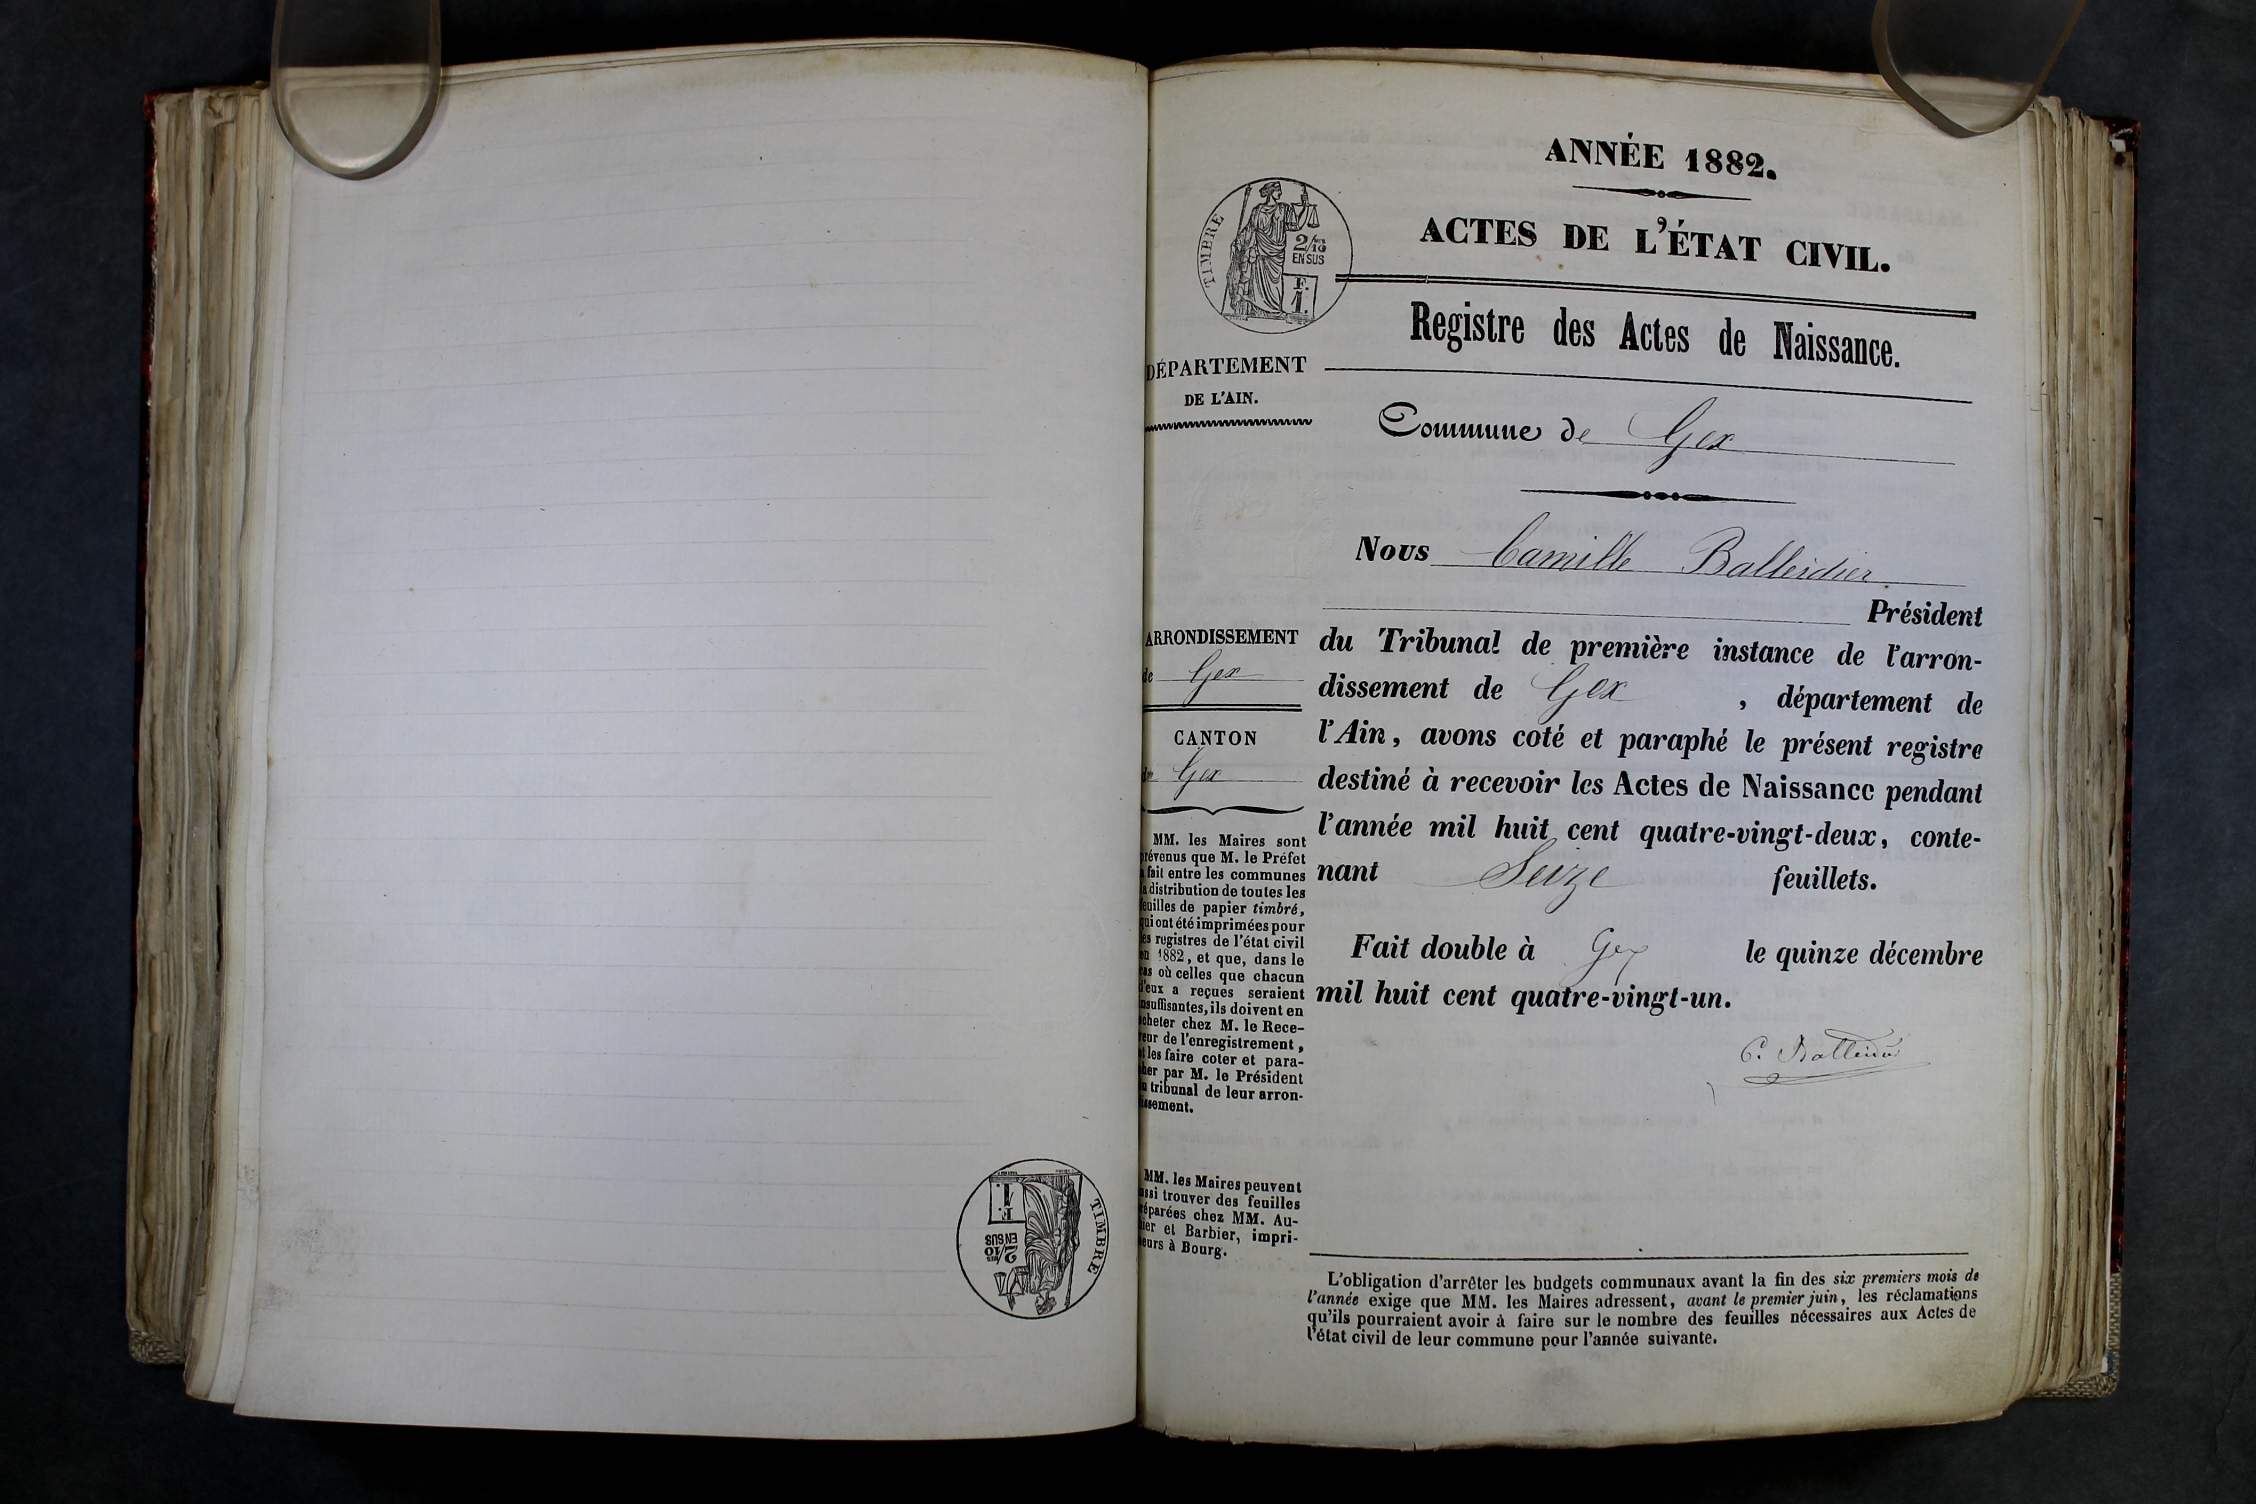 ANNÉE 1882.
ACTES DE L'ÉTAT CIVIL.
TIMBRE
2/10 EN SUS
F. 1.
Registre des Actes de Naissance.
DÉPARTEMENT
DE L'AIN.
Commune de Gex
Nous Camille Balleidier
Président
du Tribunal de première instance de l'arron-
dissement de Gex, département de
l'Ain, avons coté et paraphé le présent registre
destiné à recevoir les Actes de Naissance pendant
l'année mil huit cent quatre-vingt-deux, conte-
nant Seize feuillets.
Fait double à Gex le quinze décembre
mil huit cent quatre-vingt-un.
C. Balleidier
ARRONDISSEMENT
de Gex
CANTON
de Gex
MM. les Maires sont
prévenus que M. le Préfet
a fait entre les communes
la distribution de toutes les
feuilles de papier timbré,
qui ont été imprimées pour
les registres de l'état civil
en 1882, et que, dans le
cas où celles que chacun
d'eux a reçues seraient
insuffisantes, ils doivent en
acheter chez M. le Rece-
veur de l'enregistrement,
et les faire coter et para-
pher par M. le Président
du tribunal de leur arron-
dissement.
MM. les Maires peuvent
aussi trouver des feuilles
préparées chez MM. Au-
et Barbier, impri-
meurs à Bourg.
L'obligation d'arrêter les budgets communaux avant la fin des six premiers mois de
l'année exige que MM. les Maires adressent, avant le premier juin, les réclamations
qu'ils pourraient avoir à faire sur le nombre des feuilles nécessaires aux Actes de
l'état civil de leur commune pour l'année suivante.
TIMBRE
2/10 EN SUS
F. 1.